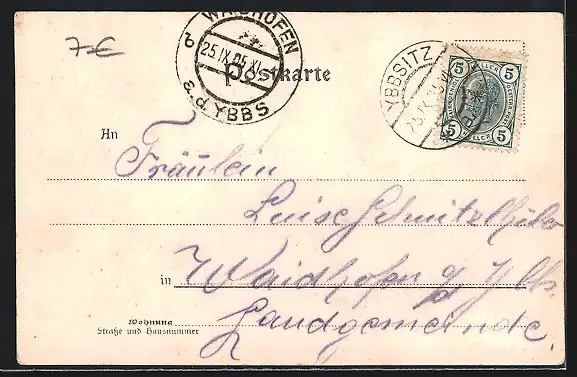 7€
WAIDHOFEN
b
25.IX.05.XI
a.d. YBBS
Postkarte
YBBSITZ
5 HELLER 5
5 HELLER 5
An
Fräulein
Luise
in Waidhofen a/d Ybbs.
Wohnung
Straße und Hausnummer
Landgemeinde.